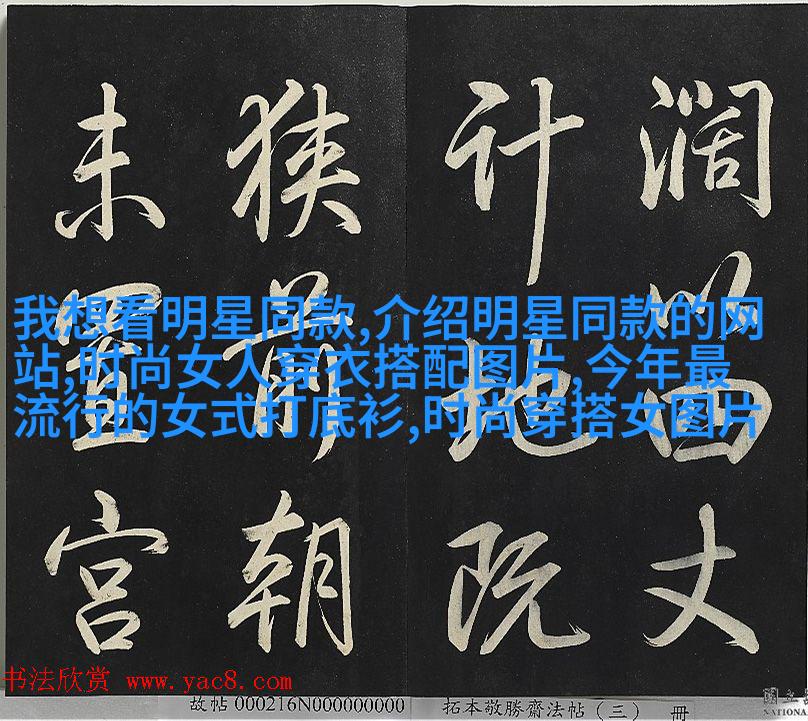 阔丈
计地既
狭前朝
未置宫
我想看明星同款,介绍明星同款的网
站,时尚女人穿衣搭配图片,今年最
流行的女式打底衫,时尚穿搭女图片
书法欣赏 www.yac8.com
故帖 000216N000000000
拓本敬勝齋法帖(三) 冊
國立
NATIONA